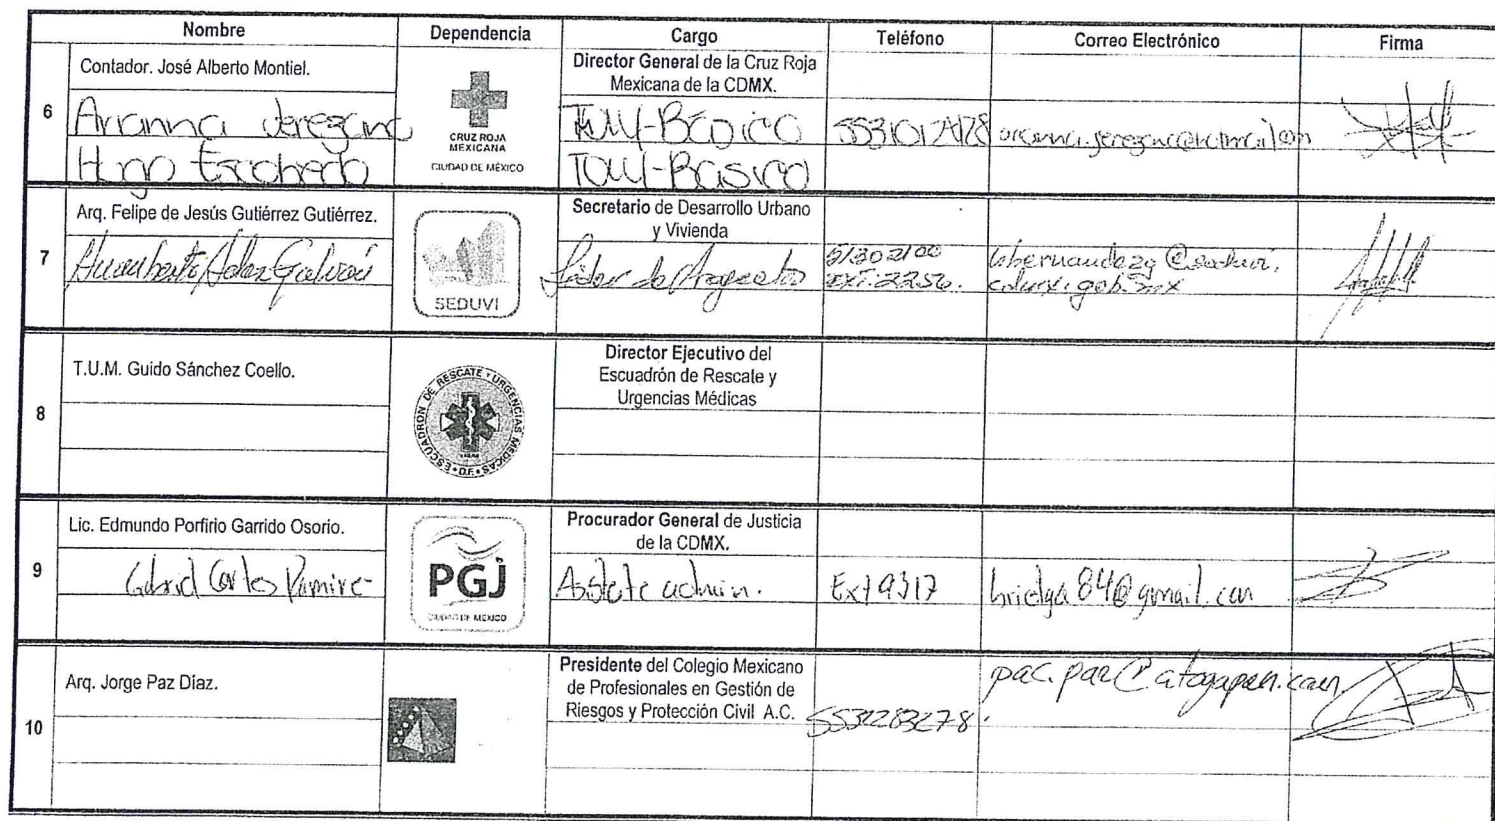 Nombre Dependencia Cargo Teléfono Correo Electrónico Firma
6
Contador. José Alberto Montiel.
Arianna Jerezano
Hugo Escobedo
CRUZ ROJA
MEXICANA
CIUDAD DE MÉXICO
Director General de la Cruz Roja
Mexicana de la CDMX.
TUM-Básico
TUM-Básico
7
Arq. Felipe de Jesús Gutiérrez Gutiérrez.
Galván
SEDUVI
Secretario de Desarrollo Urbano
y Vivienda
Líder de Proyectos
51302100
EXT. 2256.
@seduvi.
cdmx.gob.mx
8
T.U.M. Guido Sánchez Coello.
ESCUADRÓN DE RESCATE Y URGENCIAS MEDICAS
D.F.
Director Ejecutivo del
Escuadrón de Rescate y
Urgencias Médicas
9
Lic. Edmundo Porfirio Garrido Osorio.
Gabriel Carlos Ramire
PGJ
CIUDAD DE MÉXICO
Procurador General de Justicia
de la CDMX.
admin.
Ext 9317
brielga84@gmail.com
10
Arq. Jorge Paz Díaz.
Presidente del Colegio Mexicano
de Profesionales en Gestión de
Riesgos y Protección Civil A.C.